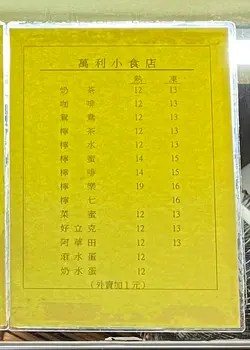 萬利小食店
熱 凍
奶茶 12 13
咖啡 12 13
鴛鴦 12 13
檸茶 12 13
檸水 12 13
檸蜜 14 15
檸啡 14 15
檸樂 19 16
檸七 16
菜蜜 12 13
好立克 12 13
阿華田 12 13
滾水蛋 12
奶水蛋 12
(外賣加1元)